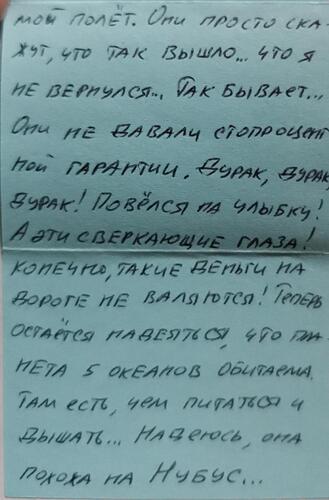 мой полёт. Они просто ска-
жут, что так вышло... что я
не вернулся... Так бывает...
Они не давали стопроцент
ной гарантии. Дурак, дурак
дурак! Повёлся на улыбку!
А эти сверкающие глаза!
Конечно, такие деньги на
дороге не валяются! Теперь
остаётся надеяться, что пла
нета 5 океанов обитаема.
Там есть, чем питаться и
дышать... Надеюсь, она
похожа на Нубус...